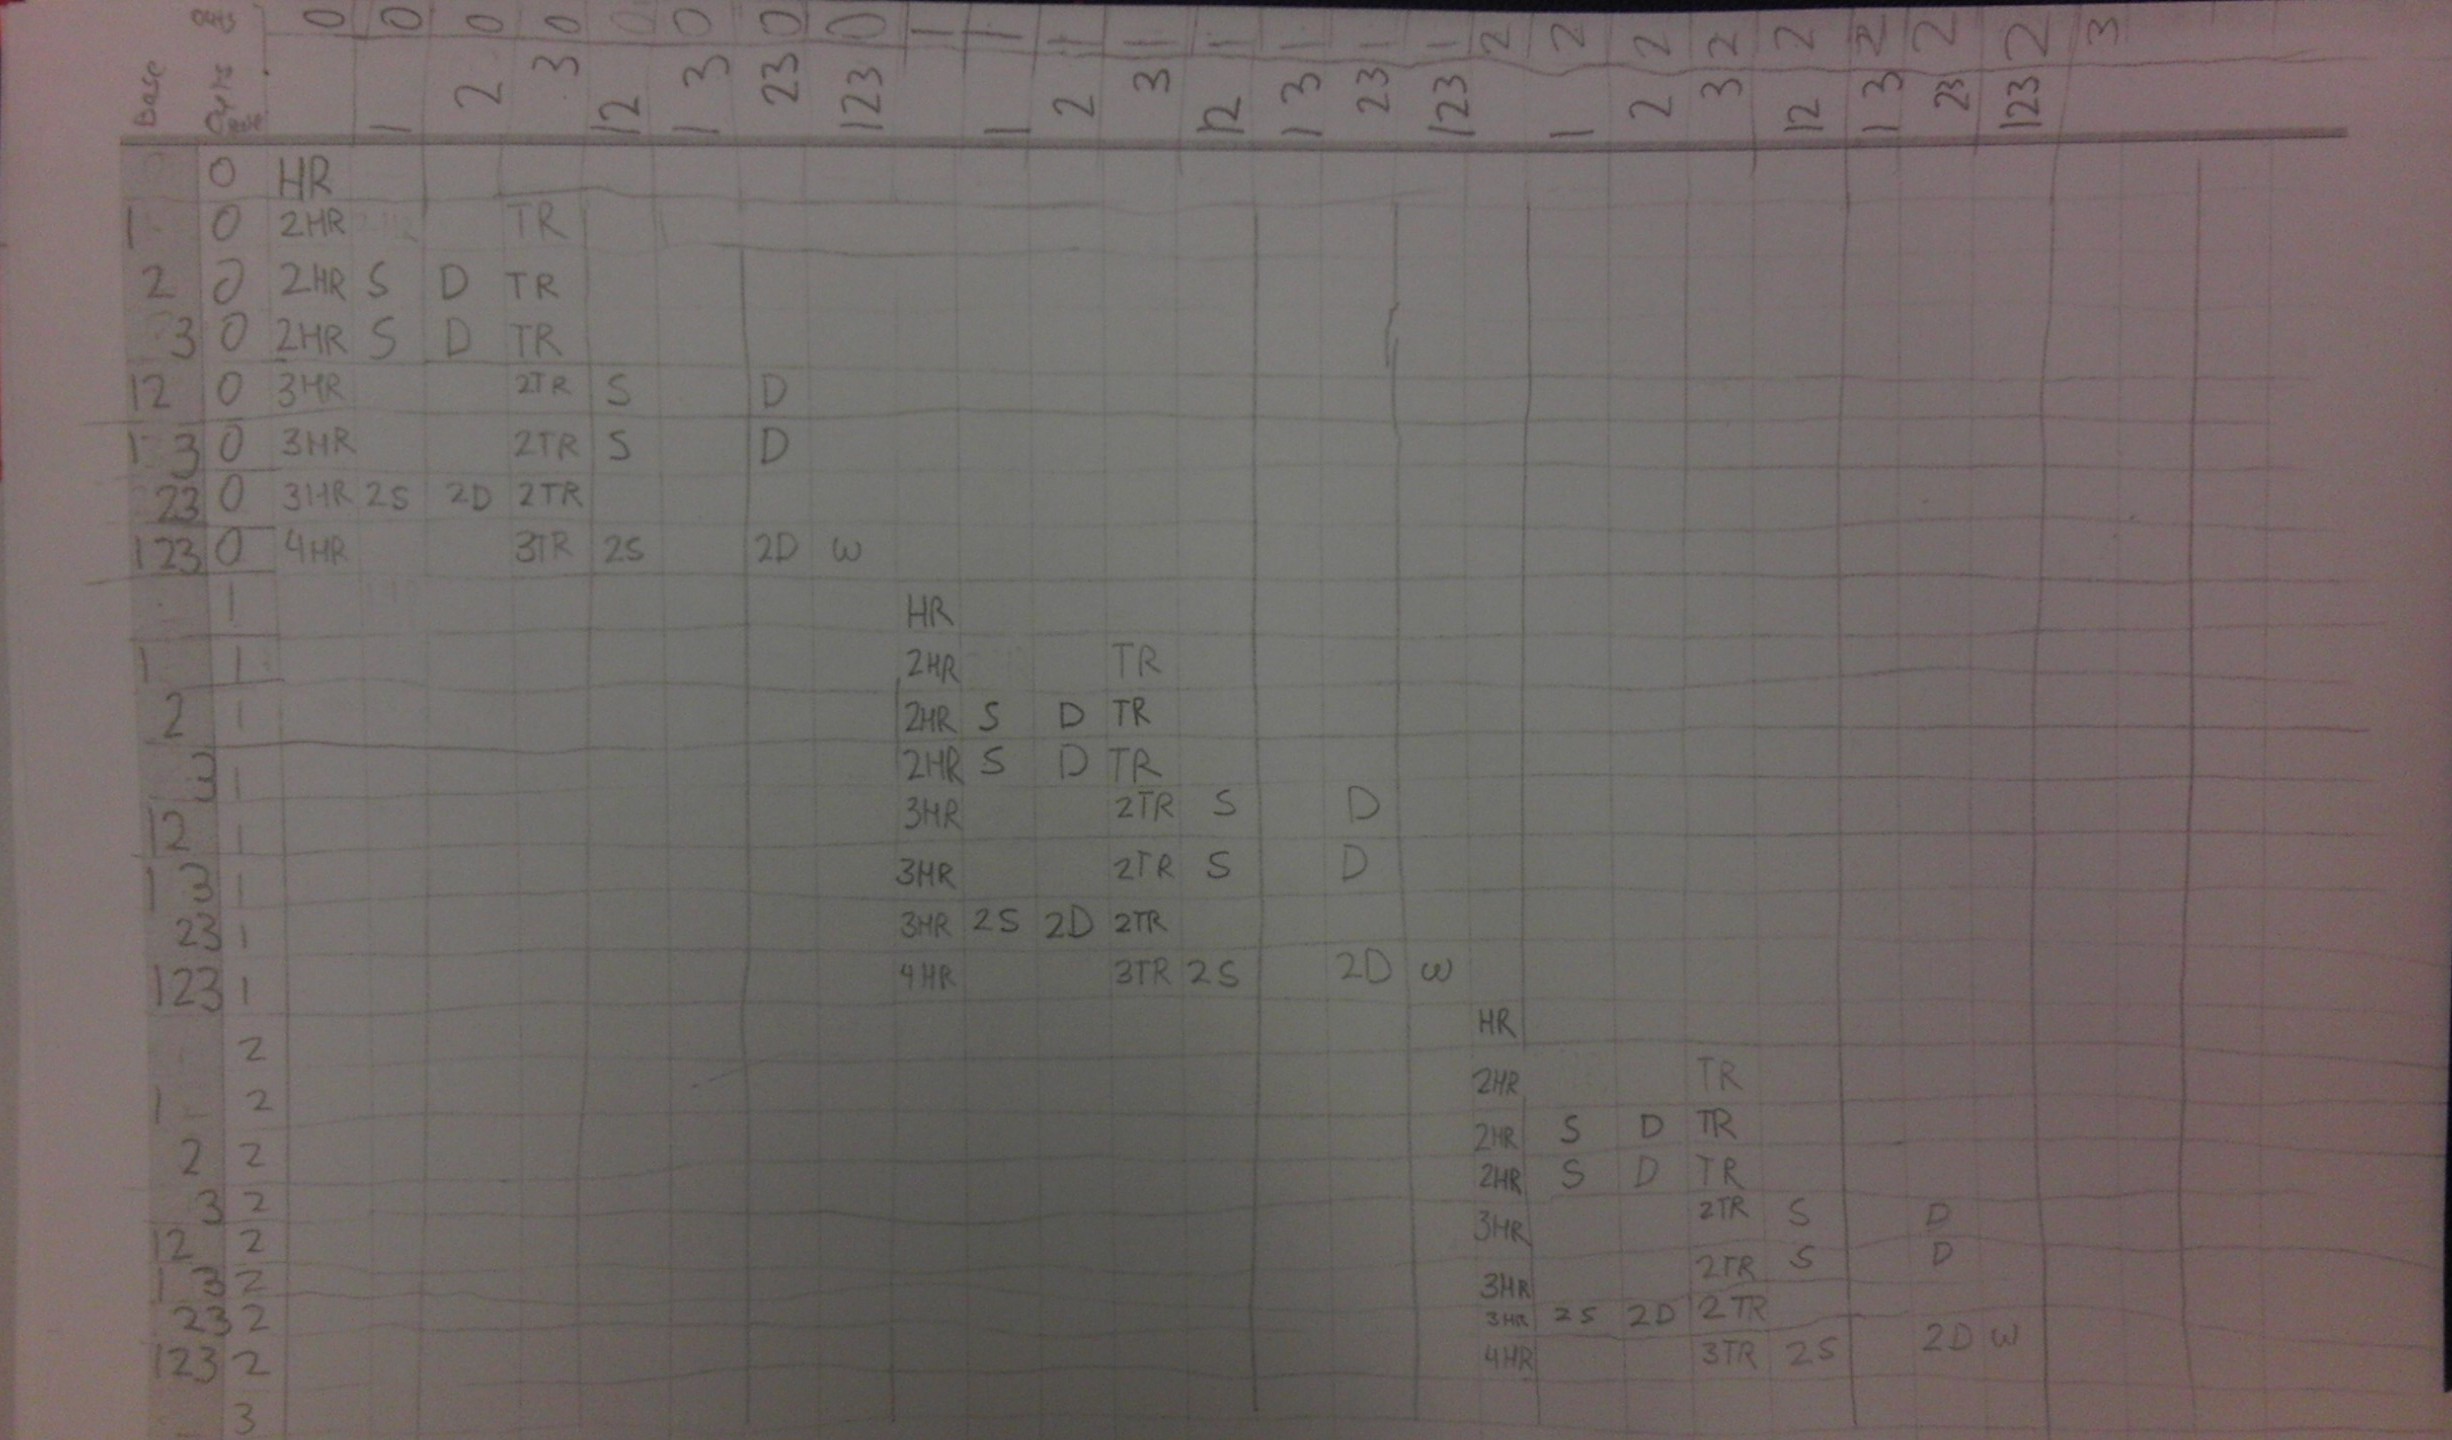 outs 0 0 0 0 0 0 0 0 1 1 1 1 1 1 1 1 2 2 2 2 2 2 2 2 3
Base 1 2 3 12 1 3 23 123 1 2 3 12 1 3 23 123 1 2 3 12 1 3 23 123
0 HR
1 0 2HR TR
2 0 2HR S D TR
3 0 2HR S D TR
12 0 3HR 2TR S D
1 3 0 3HR 2TR S D
23 0 3HR 2S 2D 2TR
123 0 4HR 3TR 2S 2D W
1 HR
1 1 2HR TR
2 1 2HR S D TR
3 1 2HR S D TR
12 1 3HR 2TR S D
1 3 1 3HR 2TR S D
23 1 3HR 2S 2D 2TR
123 1 4HR 3TR 2S 2D W
2 HR
1 2 2HR TR
2 2 2HR S D TR
3 2 2HR S D TR
12 2 3HR 2TR S D
1 3 2 3HR 2TR S D
23 2 3HR 2S 2D 2TR
123 2 4HR 3TR 2S 2D W
3